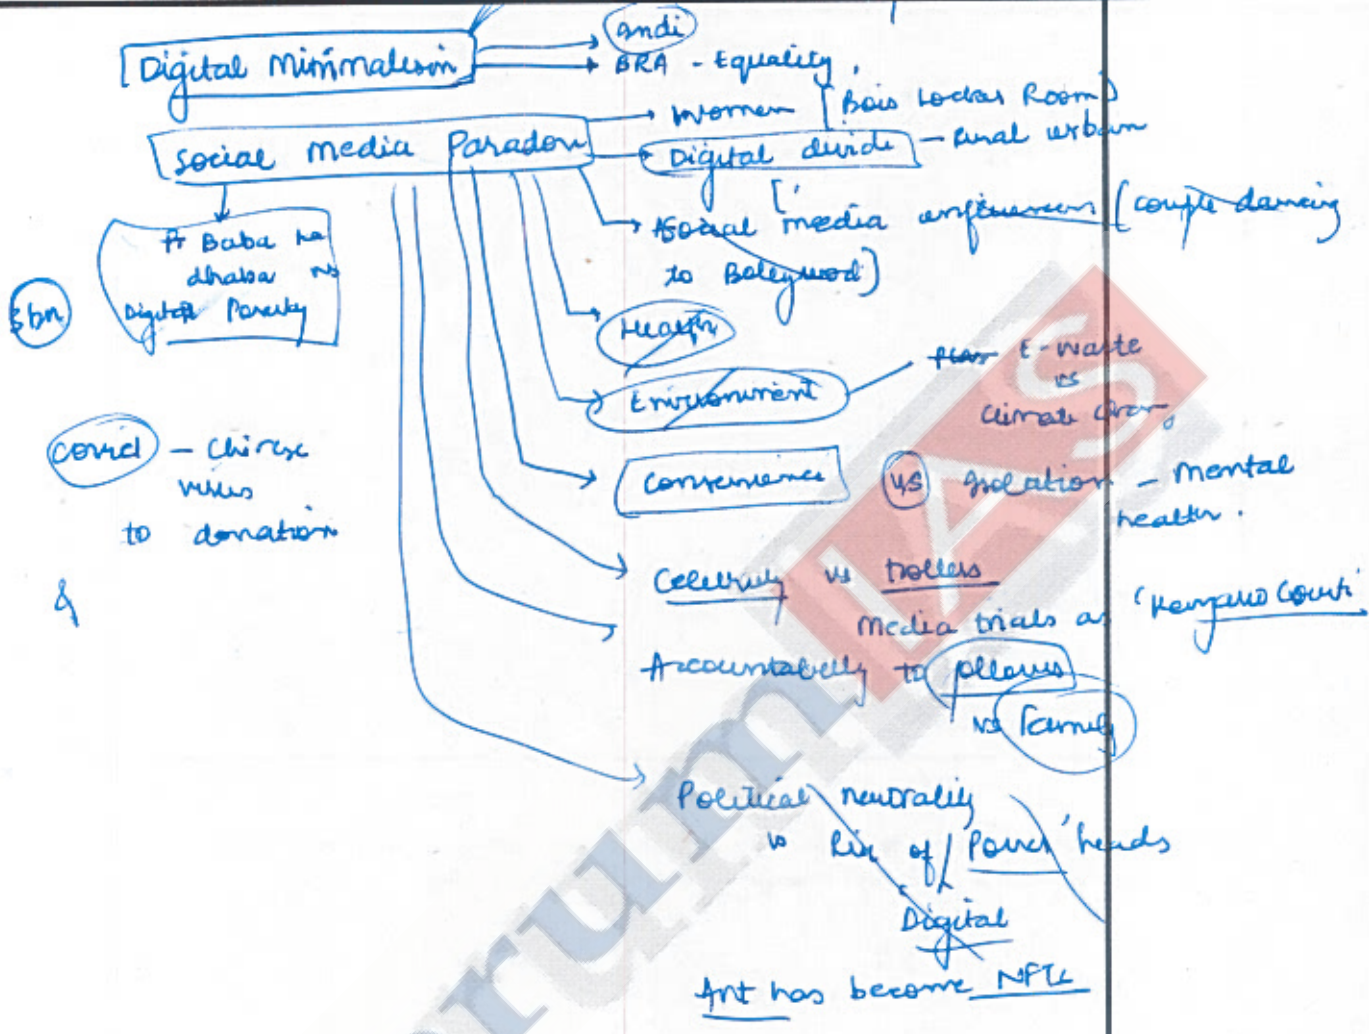 Digital Minimalism
Indi
BRA - Equality
Women [Bois Locker Room]
Social media Paradox
Digital divide - Rural urban
Social media influencers [couple dancing
to Bollywood]
Baba ka
dhaba vs
Digital Poverty
3bn
Health
Environment
E-waste
vs
Climate
Covid - Chinese
virus
to donation
&
Convenience vs Isolation - Mental
health.
Celebrity vs trollers
Media trials as 'Kangaroo Court'
Accountability to followers
vs family
Political neutrality
vs Rise of Power heads
Digital
Art has become NFTs
rum IAS